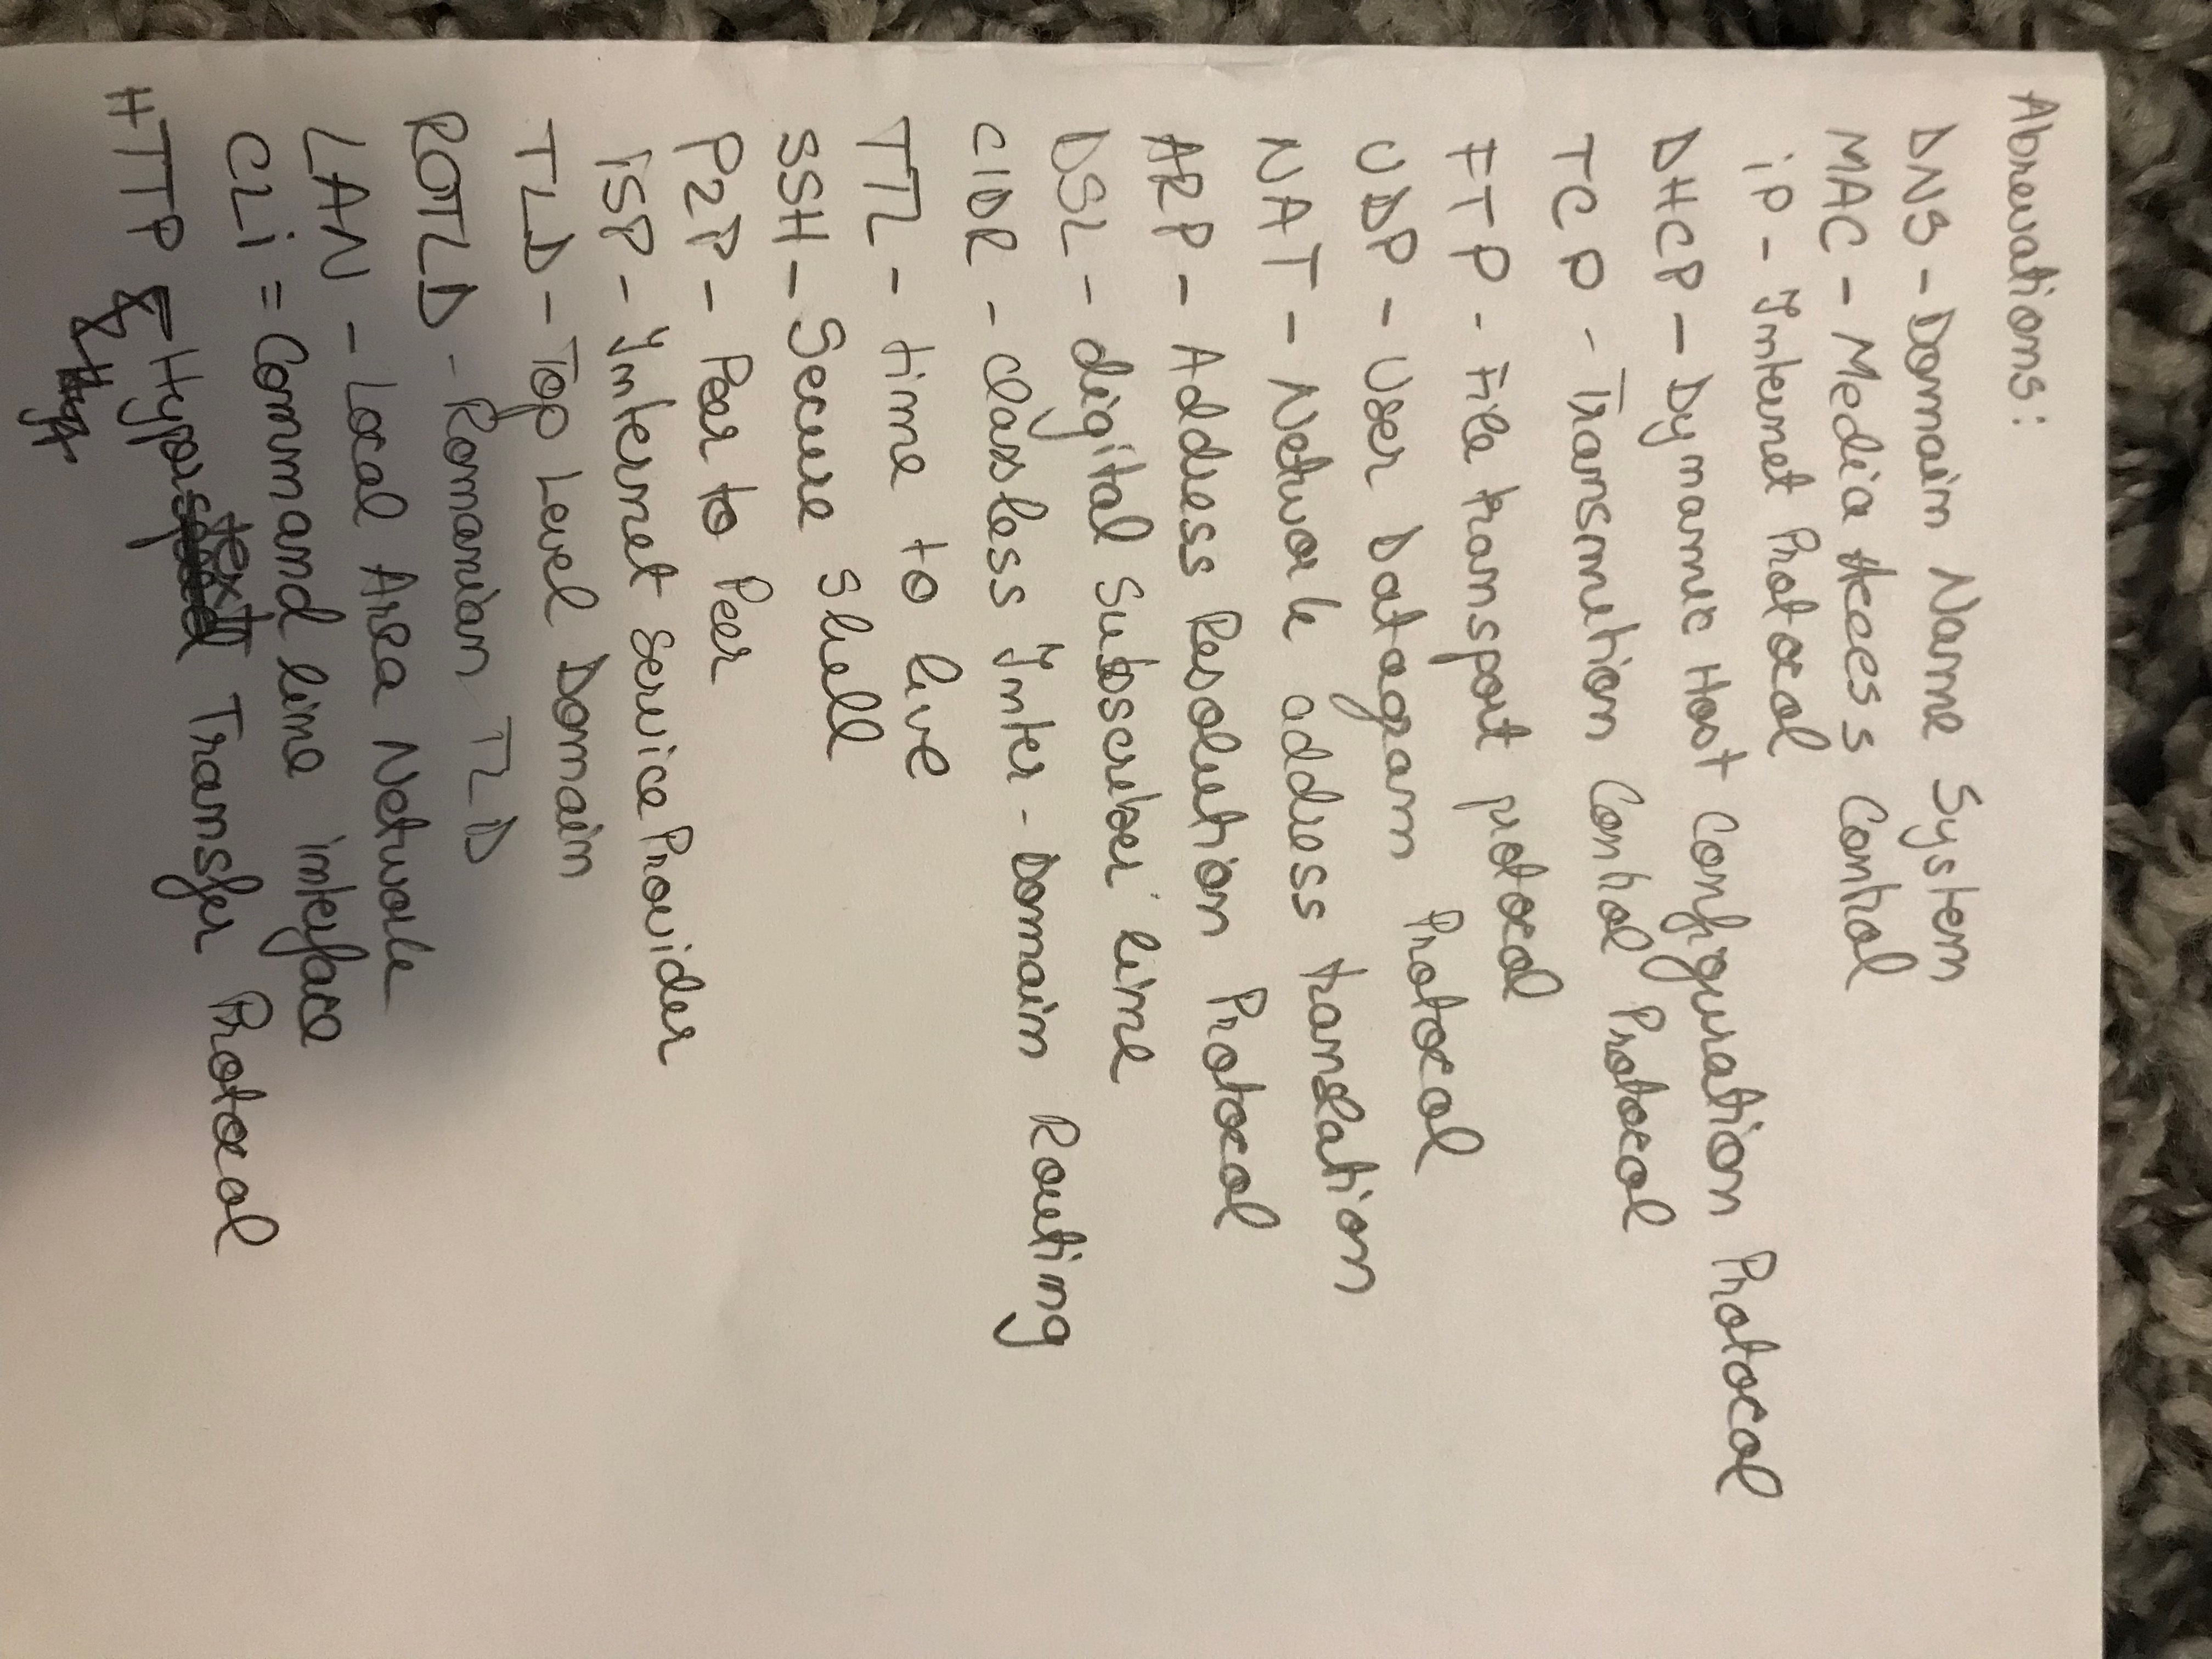 Abrevations:
DNS - Domain Name System
MAC - Media Access Control
iP - Internet Protocol
DHCP - Dynamic Host Configuration Protocol
TCP - Transmition Control Protocol
FTP - File transport protocol
UDP - User Datagram Protocol
NAT - Network address translation
ARP - Address Resolution Protocol
DSL - digital subscriber line
CIDR - classless Inter-Domain Routing
TTL - time to live
SSH - Secure shell
P2P - Peer to Peer
ISP - Internet service Provider
TLD - Top Level Domain
ROTLD - Romanian TLD
LAN - Local Area Network
CLi = Command line interface
HTTP - Hyper text Transfer Protocol